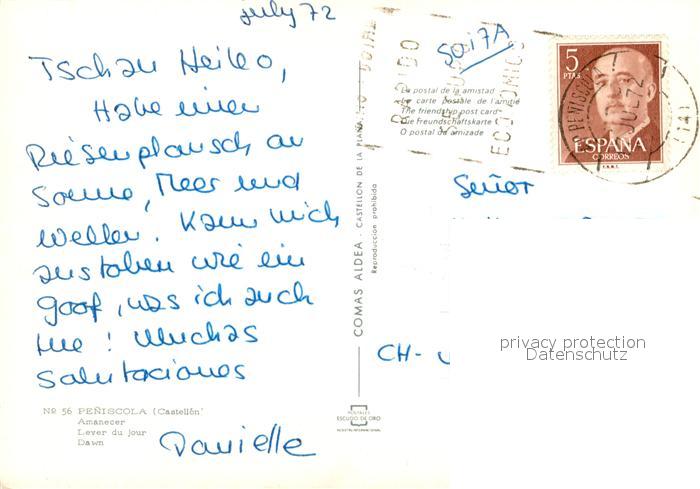 july 72
Tschau Heiko,
Habe einen
Riesenplausch an
Sonne, Meer und
Wellen. Kann mich
austoben wie ein
Goof, was ich auch
tue! Muchas
Salutaciones
Danielle
Nº 56 PEÑISCOLA (Castellón)
Amanecer
Lever du jour
Dawn
COMAS ALDEA - CASTELLON DE LA PLANA
Reproduccion prohibida
POSTALES
ESCUDO DE ORO
La postal de la amistad
La carte postale de l'amitié
The friendship post card
Die Freundschaftskarte
O postal da amizade
RAPIDO
ECONOMICO
5
PTAS
ESPAÑA
CORREOS
F.N.M.T.
PEÑISCOLA
JUL 72
Señor
CH-
privacy protection
Datenschutz